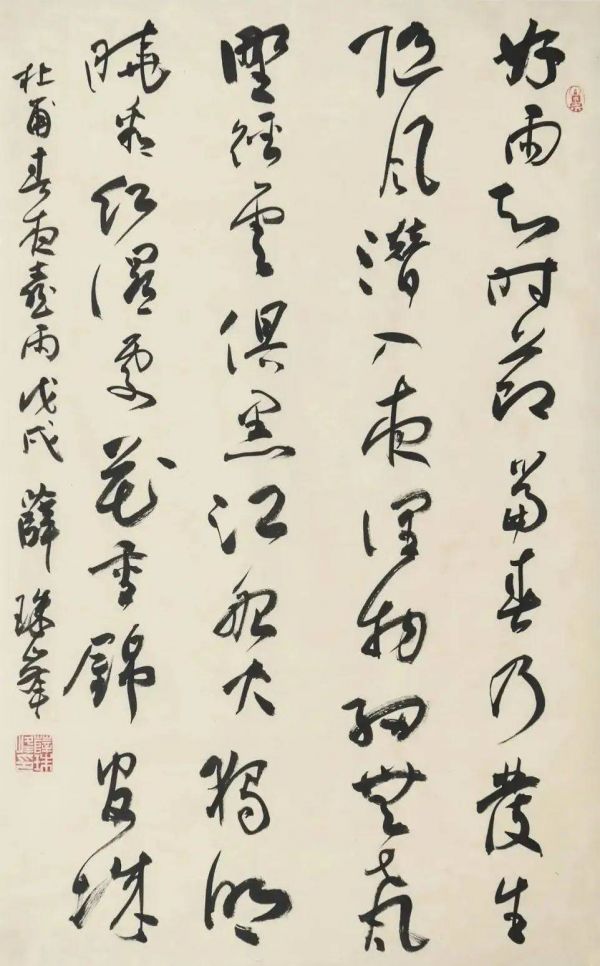 好雨知時節當春乃發生
隨風潛入夜潤物細無聲
野徑雲俱黑江船火獨明
曉看紅濕處花重錦官城
杜甫春夜喜雨戊戌 薛珠峯